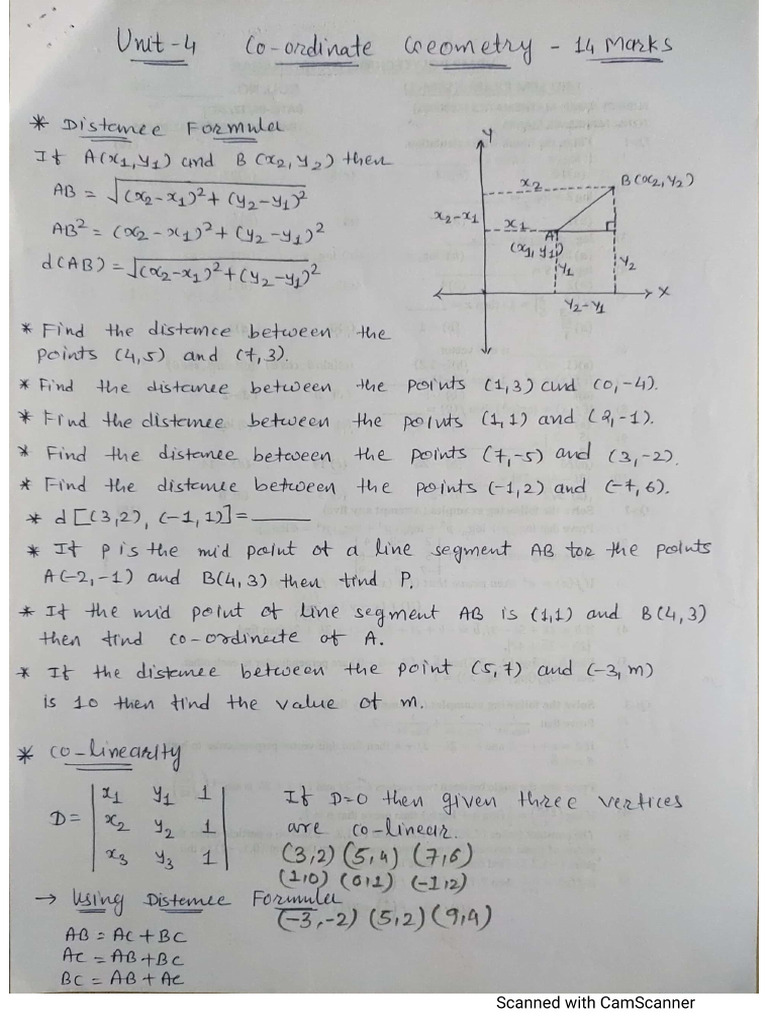 Unit-4 Co-ordinate Geometry - 14 Marks
* Distance Formula
If A(x1,y1) and B(x2,y2) then
AB = √(x2-x1)²+(y2-y1)²
AB² = (x2-x1)²+(y2-y1)²
d(AB) = √(x2-x1)²+(y2-y1)²
Y
x2
B(x2,y2)
x2-x1
x1
A
(x1,y1)
y1
y2
X
y2-y1
* Find the distance between the
points (4,5) and (7,3).
* Find the distance between the points (1,3) and (0,-4).
* Find the distance between the points (1,1) and (2,-1).
* Find the distance between the points (7,-5) and (3,-2).
* Find the distance between the points (-1,2) and (-7,6).
* d[(3,2), (-1,1)]=____
* If P is the mid point of a line segment AB for the points
A(-2,-1) and B(4,3) then find P.
* If the mid point of line segment AB is (1,1) and B(4,3)
then find co-ordinate of A.
* If the distance between the point (5,7) and (-3,m)
is 10 then find the value of m.
* Co-linearity
D= | x1 y1 1 |
| x2 y2 1 |
| x3 y3 1 |
If D=0 then given three vertices
are co-linear.
(3,2) (5,4) (7,6)
(1,0) (0,1) (-1,2)
→ Using Distance Formula
(-3,-2) (5,2) (9,4)
AB = AC+BC
AC = AB+BC
BC = AB+AC
Scanned with CamScanner